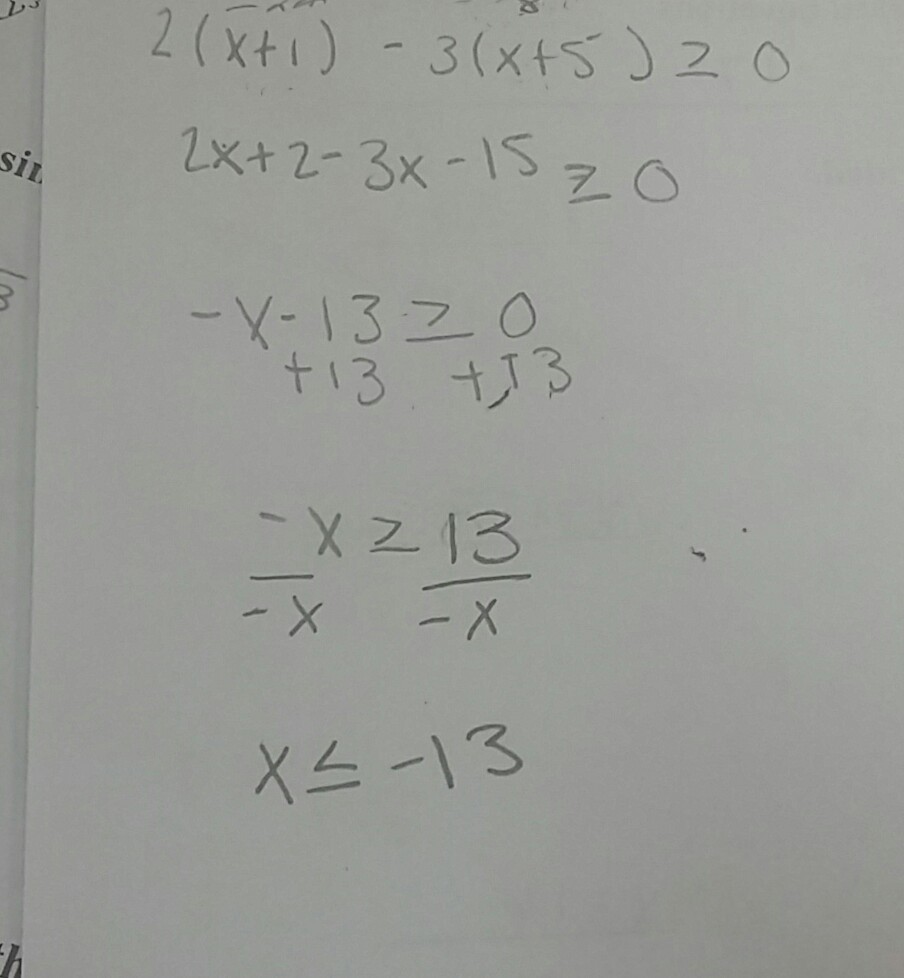 2(x+1) - 3(x+5) ≥ 0
2x+2-3x-15 ≥ 0
-x-13 ≥ 0
+13 +13
-x ≥ 13
-x -x
x ≤ -13
sin